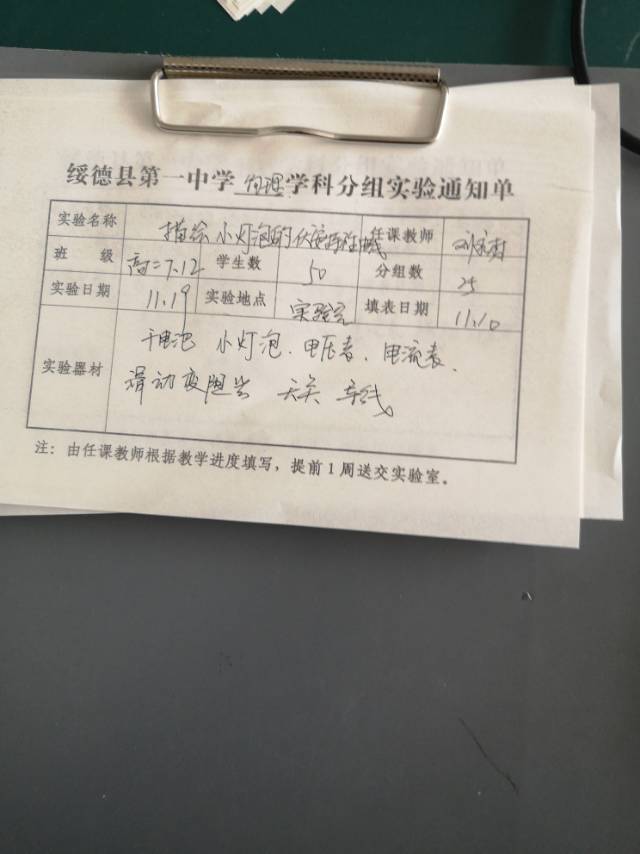 绥德县第一中学物理学科分组实验通知单
实验名称 描绘小灯泡的伏安特性曲线 任课教师
班级 高二7.12 学生数 50 分组数 25
实验日期 11.19 实验地点 实验室 填表日期 11.10
实验器材 干电池 小灯泡、电压表、电流表、
滑动变阻器 开关 导线
注：由任课教师根据教学进度填写，提前1周送交实验室。